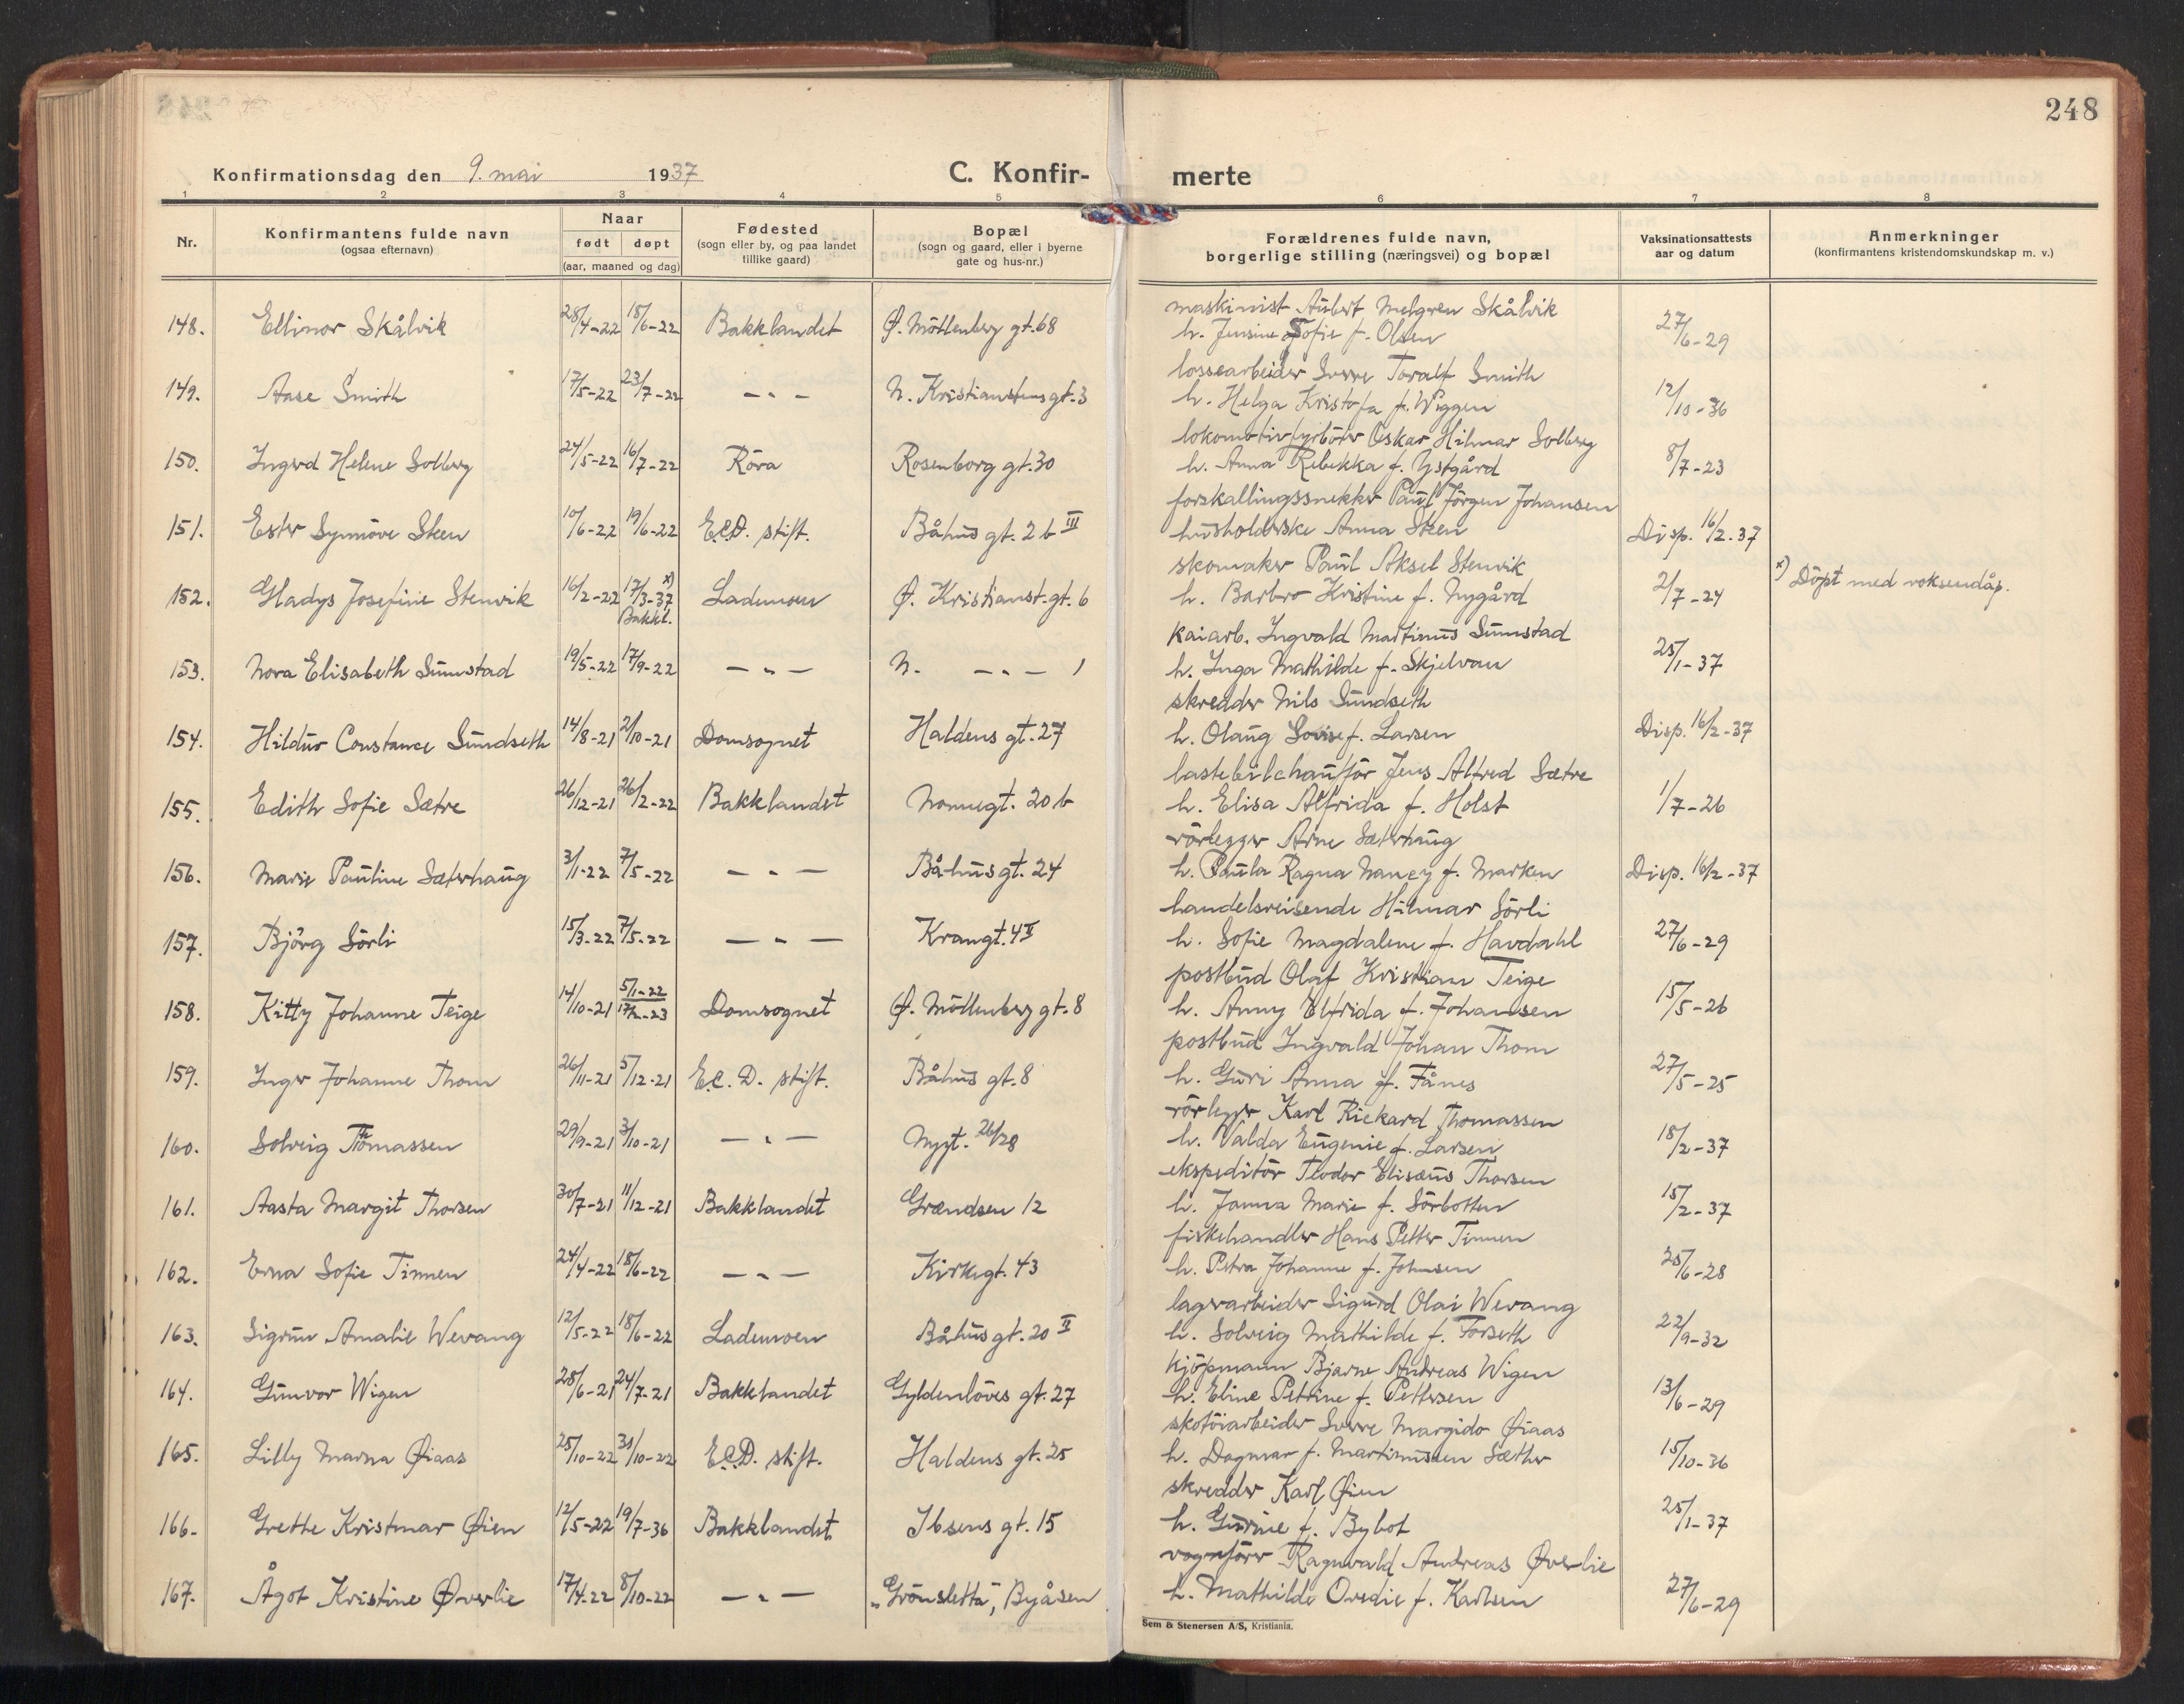 248
Konfirmationsdag den 9. mai 1937
C. Konfir-
merte
1 2 3 4 5 6 7 8
Nr.
Konfirmantens fulde navn
(ogsaa efternavn)
Naar
født døpt
(aar, maaned og dag)
Fødested
(sogn eller by, og paa landet
tillike gaard)
Bopæl
(sogn og gaard, eller i byerne
gate og hus-nr.)
Forældrenes fulde navn,
borgerlige stilling (næringsvei) og bopæl
Vaksinationsattests
aar og datum
Anmerkninger
(konfirmantens kristendomskundskap m. v.)
148. Ellinor Skålvik 28/4-22 18/6-22 Bakklandet Ø. Möllenberg gt. 68
maskinist Aubert Melgren Skålvik
h. Jensine Sofie f. Olsen 27/6-29
149. Aase Smith 17/5-22 23/7-22 — " — N. Kristianstens gt. 3
lossearbeider Sverre Toralf Smith
h. Helga Kristofa f. Wiggen 12/10-36
150. Ingerd Helene Solberg 24/5-22 16/7-22 Röra Rosenborg gt. 30
lokomotivfyrböter Oskar Hilmar Solberg
h. Anna Rebekka f. Ystgård 8/7-23
151. Ester Synnöve Steen 10/6-22 19/6-22 E.C.D. stift. Båhus gt. 2 b III
forskallingssnekker Paul Jörgen Johansen
husholderske Anna Steen Disp. 16/2-37
152. Gladys Josefine Stenvik 16/2-22 17/3-37 x) Bakkl. Lademoen Ø. Kristianst. gt. 6
skomaker Paul Aksel Stenvik
h. Barbro Kristine f. Nygård 2/7-24 x) Döpt med voksendåp.
153. Nora Elisabeth Sumstad 19/5-22 17/9-22 — " — N. — " — 1
kaiarb. Ingvald Martinus Sumstad
h. Inga Mathilde f. Skjelvan 25/1-37
154. Hildur Constance Sundseth 14/8-21 2/10-21 Domsognet Haldens gt. 27
skredder Nils Sundseth
h. Olaug Lovise f. Larsen Disp. 16/2-37
155. Edith Sofie Sætre 26/12-21 26/2-22 Bakklandet Nonnegt. 20 b
lastebilchaufför Jens Alfred Sætre
h. Elisa Alfrida f. Holst 1/7-26
156. Marie Pauline Sæterhaug 3/1-22 7/5-22 — " — Båhus gt. 24
rörlegger Arne Sæterhaug
h. Paula Ragna Nancy f. Marken Disp. 16/2-37
157. Björg Sörli 15/3-22 7/5-22 — " — Krangt. 4 II
handelsreisende Hilmar Sörli
h. Sofie Magdalene f. Havdahl 27/6-29
158. Kitty Johanne Teige 14/10-21 5/1-22 17/2-23 Domsognet Ø. Möllenberg gt. 8
postbud Olaf Kristian Teige
h. Anny Elfrida f. Johansen 15/5-26
159. Inger Johanne Thom 26/11-21 5/12-21 E.C.D. stift. Båhus gt. 8
postbud Ingvald Johan Thom
h. Guri Anna f. Fånes 27/5-25
160. Solveig Thomassen 29/9-21 3/10-21 — " — Nygt. 26/28
rörlegger Karl Rickard Thomassen
h. Valda Eugenie f. Larsen 18/2-37
161. Aasta Margit Thorsen 30/7-21 11/12-21 Bakklandet Grændsen 12
ekspeditör Teodor Elisæus Thorsen
h. Janna Marie f. Sörbotten 15/2-37
162. Erna Sofie Tinnen 24/4-22 18/6-22 — " — Kirkegt. 43
fiskehandler Hans Petter Tinnen
h. Petra Johanne f. Johnsen 25/6-28
163. Sigrun Amalie Wevang 12/5-22 18/6-22 Lademoen Båhus gt. 20 II
lagerarbeider Sigurd Olai Wevang
h. Solveig Mathilde f. Forseth 22/9-32
164. Gunvor Wigen 25/6-21 24/7-21 Bakklandet Gyldenlöves gt. 27
kjöpmann Bjarne Andreas Wigen
h. Eline Petrine f. Pettersen 13/6-29
165. Lilly Marna Øiaas 25/10-22 31/10-22 E.C.D. stift. Haldens gt. 25
skotöiarbeider Sverre Margido Øiaas
h. Dagmar f. Martinussen Sæther 15/10-36
166. Grethe Kristmar Øien 12/5-22 19/7-36 Bakklandet Ibsens gt. 15
skredder Karl Øien
h. Gurine f. Bybot 25/1-37
167. Ågot Kristine Øverlie 17/4-22 8/10-22 — " — "Grönsletta", Byåsen
vognförer Ragnvald Andreas Øverlie
h. Mathilde Ovedie f. Karlsen 27/6-29
Sem & Stenersen A/S, Kristiania.